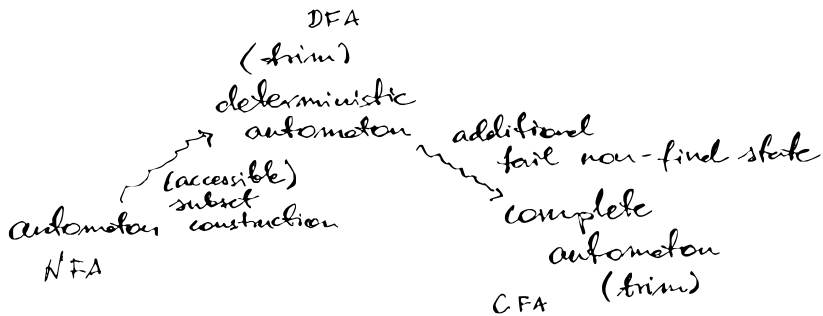 DFA
(trim)
deterministic
automaton
additional
fail non-final state
(accessible)
subset
automaton construction
NFA
complete
automaton
(trim)
CFA